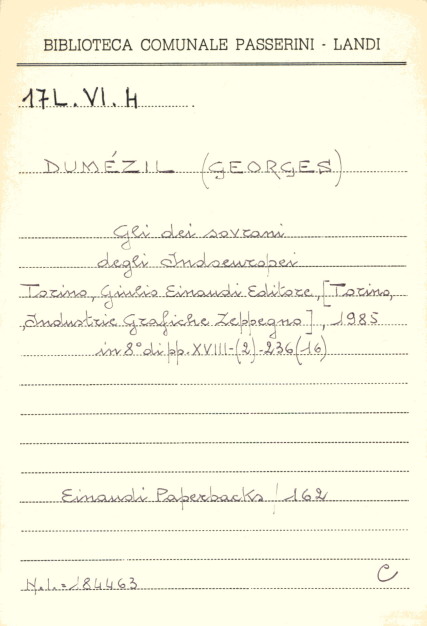 BIBLIOTECA COMUNALE PASSERINI - LANDI
17L. VI. H
DUMÉZIL (GEORGES)
Gli dei sovrani
degli Indoeuropei
Torino, Giulio Einaudi Editore, [Torino,
Industrie Grafiche Zeppegno], 1985
in 8° di pp. XVIII-(2)-236(16)
Einaudi Paperbacks / 162
N.I.=184463
C